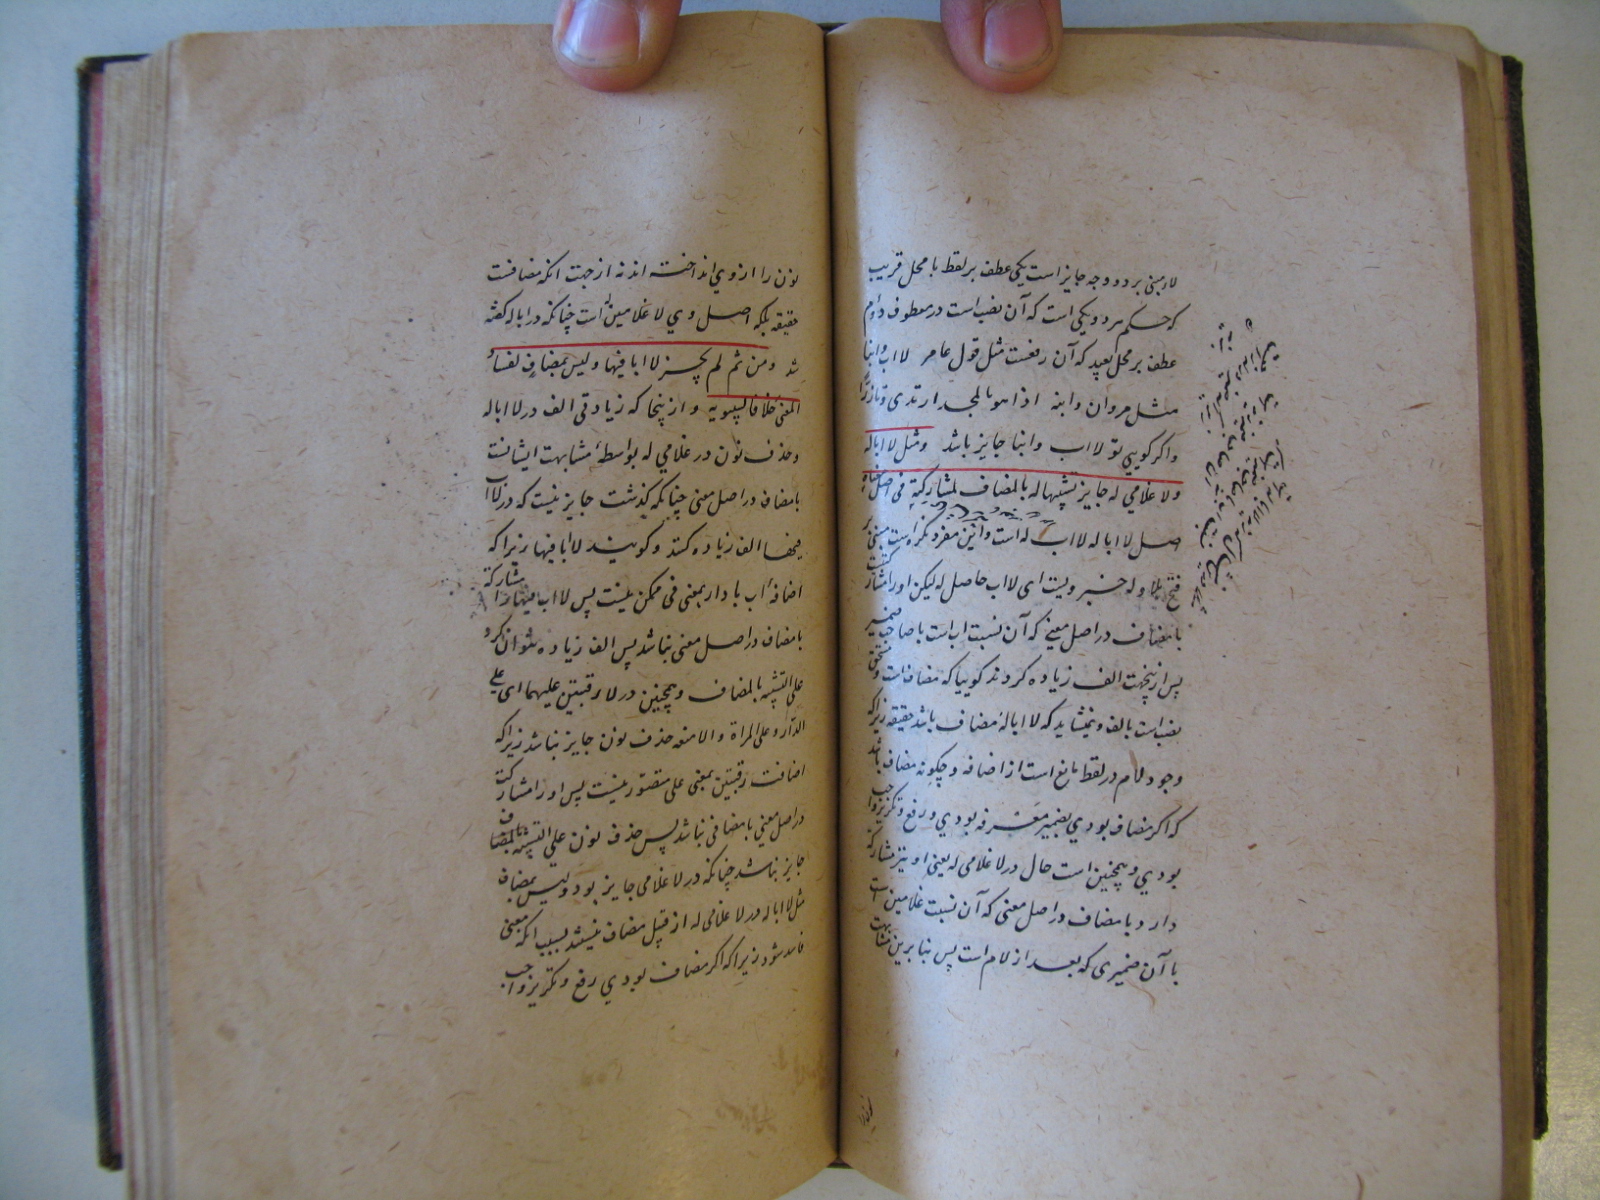 لا مبنی بر دو وجه جایز است یکی عطف بر لفظ یا محل قریب
که حکم هر دو یکی است که آن نصب است در معطوف دوم
عطف بر محل بعید که آن رفعست مثل قول شاعر لا اب وابنا
مثل مروان وابنه اذا هو بالمجد ارتدی وتازرا
واکر کویی تو لا اب وابنا جایز باشد ومثل لا ابا له
ولا غلامی له جایز تشبیها له بالمضاف لمشارکته فی اصل معناه
اصل لا ابا له لا اب له است واین مفرد نکره است مبنی بر
فتح بلا وله خبر ویست ای لا اب حاصل له لیکن اورا مشارکتست
با مضاف در اصل معنی که آن نسبت اب است با صاحب ضمیر
پس ازینجهت الف زیاده کردند کوییا که مضافست ومستحق
نصب است بالف ونمیشاید که لا ابا له مضاف باشد حقیقه زیرا که
وجود لام در لفظ مانع است از اضافه وچکونه مضاف باشد
که اکر مضاف بودی بضمیر معرفه بودی ورفع وتکریر واجب
بودی وهمچنین است حال در لا غلامی له یعنی او نیز مشارکه
دارد با مضاف در اصل معنی که آن نسبت غلامین است
با آن ضمیری که بعد از لام است پس بنابرین مشابهت
نون را از وی انداخته اند نه از جهت انکه مضافست
حقیقه بلکه اصل وی لا غلامین له است چنانکه در ابا له کفته
شد ومن ثم لم یجز لا ابا فیها ولیس بمضاف لفساد
المعنی خلافا لسیبویه وازینجا که زیادتی الف در لا ابا له
وحذف نون در غلامی له بواسطهٔ مشابهت ایشانست
با مضاف در اصل معنی چنانکه کذشت جایز نیست که در لا اب
فیها الف زیاده کنند وکویند لا ابا فیها زیرا که
اضافه اب با دار بمعنی فی ممکن نیست پس لا اب فیها را مشارکة
با مضاف در اصل معنی نباشد پس الف زیاده نتوان کرد
علی التشبیه بالمضاف وهمچنین در لا رقبتین علیهما ای علی
الدار وعلی المراة والامنعه حذف نون جایز نباشد زیرا که
اضافت رقبتین بمعنی علی متصور نیست پس اورا مشارکت
در اصل معنی با مضافی نباشد پس حذف نون علی التشبیه بالمضاف
جایز نباشد چنانکه در لا غلامی جایز بود ولیس بمضاف
مثل لا ابا له در لا غلامی له از قبیل مضاف نیستند بسبب انکه معنی
فاسد شود زیرا که اکر مضاف بودی رفع وتکریر واجب